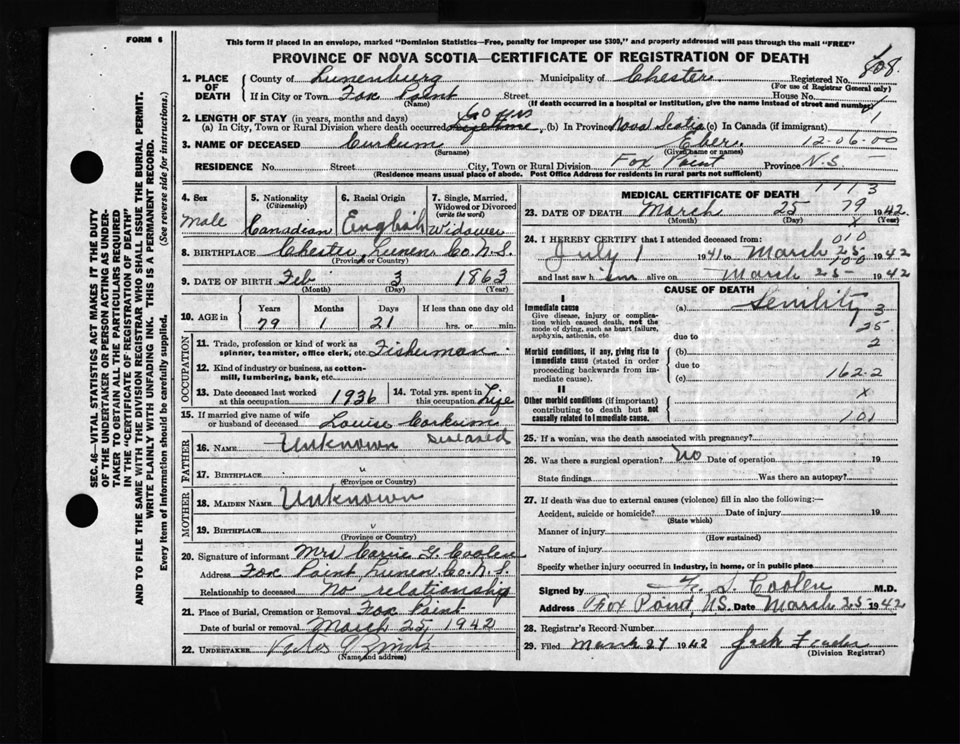 FORM 6
This form if placed in an envelope, marked "Dominion Statistics—Free, penalty for improper use $300," and properly addressed will pass through the mail "FREE"
PROVINCE OF NOVA SCOTIA—CERTIFICATE OF REGISTRATION OF DEATH
SEC. 46—VITAL STATISTICS ACT MAKES IT THE DUTY
OF THE UNDERTAKER OR PERSON ACTING AS UNDER-
TAKER TO OBTAIN ALL THE PARTICULARS REQUIRED
IN THE "CERTIFICATE OF REGISTRATION OF DEATH"
AND TO FILE THE SAME WITH THE DIVISION REGISTRAR WHO SHALL ISSUE THE BURIAL PERMIT.
WRITE PLAINLY WITH UNFADING INK. THIS IS A PERMANENT RECORD.
Every item of information should be carefully supplied. (See reverse side for instructions.)
1. PLACE OF DEATH
County of Lunenburg Municipality of Chester Registered No. 808.
(For use of Registrar General only)
If in City or Town Fox Point Street House No.
(Name) (If death occurred in a hospital or institution, give the name instead of street and number)
2. LENGTH OF STAY (in years, months and days) 60 yrs
(a) In City, Town or Rural Division where death occurred Lifetime, (b) In Province Nova Scotia (c) In Canada (if immigrant)
3. NAME OF DECEASED Curkum Eber 12-06-00
(Surname) (Given name or names)
RESIDENCE No. Street City, Town or Rural Division Fox Point Province N.S.
(Residence means usual place of abode. Post Office Address for residents in rural parts not sufficient)
4. Sex
Male
5. Nationality
(Citizenship)
Canadian
6. Racial Origin
English
7. Single, Married, Widowed or Divorced
(write the word)
Widower
8. BIRTHPLACE Chester Lunen Co. N.S.
(Province or Country)
9. DATE OF BIRTH Feb 3 1863
(Month) (Day) (Year)
10. AGE in Years Months Days If less than one day old
79 1 21 hrs. or min.
OCCUPATION
11. Trade, profession or kind of work as
spinner, teamster, office clerk, etc. Fisherman.
12. Kind of industry or business, as cotton-
mill, lumbering, bank, etc.
13. Date deceased last worked at this occupation 1936
14. Total yrs. spent in this occupation Life
15. If married give name of wife or husband of deceased Louise Corkum
deceased
FATHER
16. NAME Unknown
17. BIRTHPLACE "
(Province or Country)
MOTHER
18. MAIDEN NAME Unknown
19. BIRTHPLACE "
(Province or Country)
20. Signature of informant Mrs Carrie L. Coolen
Address Fox Point, Lunen Co. N.S.
Relationship to deceased no relationship
21. Place of Burial, Cremation or Removal Fox Point
Date of burial or removal March 25, 1942
22. UNDERTAKER
(Name and address)
MEDICAL CERTIFICATE OF DEATH
1113
23. DATE OF DEATH March 25 79 1942
(Month) (Day) (Year)
x
24. I HEREBY CERTIFY that I attended deceased from: 010
July 1 1941 to March 25 1942
and last saw him alive on March 25- 1942
CAUSE OF DEATH
I
Immediate cause (a) Senility
Give disease, injury or complica-
tion which caused death, not the
mode of dying, such as heart failure,
asphyxia, asthenia, etc. due to
3
25
2
Morbid conditions, if any, giving rise to
immediate cause (stated in order
proceeding backwards from im-
mediate cause). (b)
due to
(c) 162-2
II
Other morbid conditions (if important)
contributing to death but not
causally related to immediate cause.
x
101
25. If a woman, was the death associated with pregnancy?
26. Was there a surgical operation? No Date of operation 19
State findings Was there an autopsy?
27. If death was due to external causes (violence) fill in also the following:—
Accident, suicide or homicide? Date of injury 19
(State which)
Manner of injury
(How sustained)
Nature of injury
Specify whether injury occurred in industry, in home, or in public place
Signed by S Coolen M.D.
Address Fox Point, N.S. Date March 25 1942
28. Registrar's Record Number
29. Filed March 27 1942 Jack
(Division Registrar)